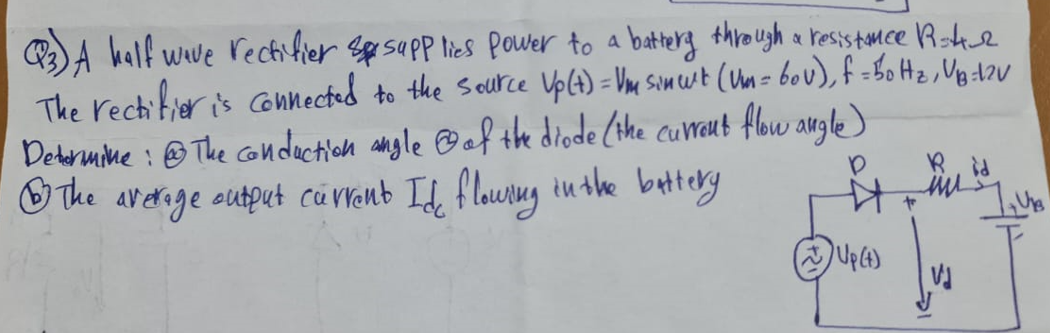 Q3) A half wave rectifier supplies power to a battery through a resistance R=4Ω
The rectifier is connected to the source Vp(t) = Vm sin wt (Vm = 60V), f = 50 Hz, VB=12V
Determine : ⓐ The conduction angle Θ of the diode (the current flow angle)
ⓑ The average output current Idc flowing in the battery
D R id
+ + VB
Vp(t) Vd